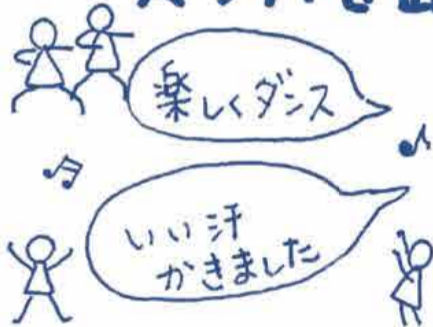 楽しくダンス
いい汗
かきました